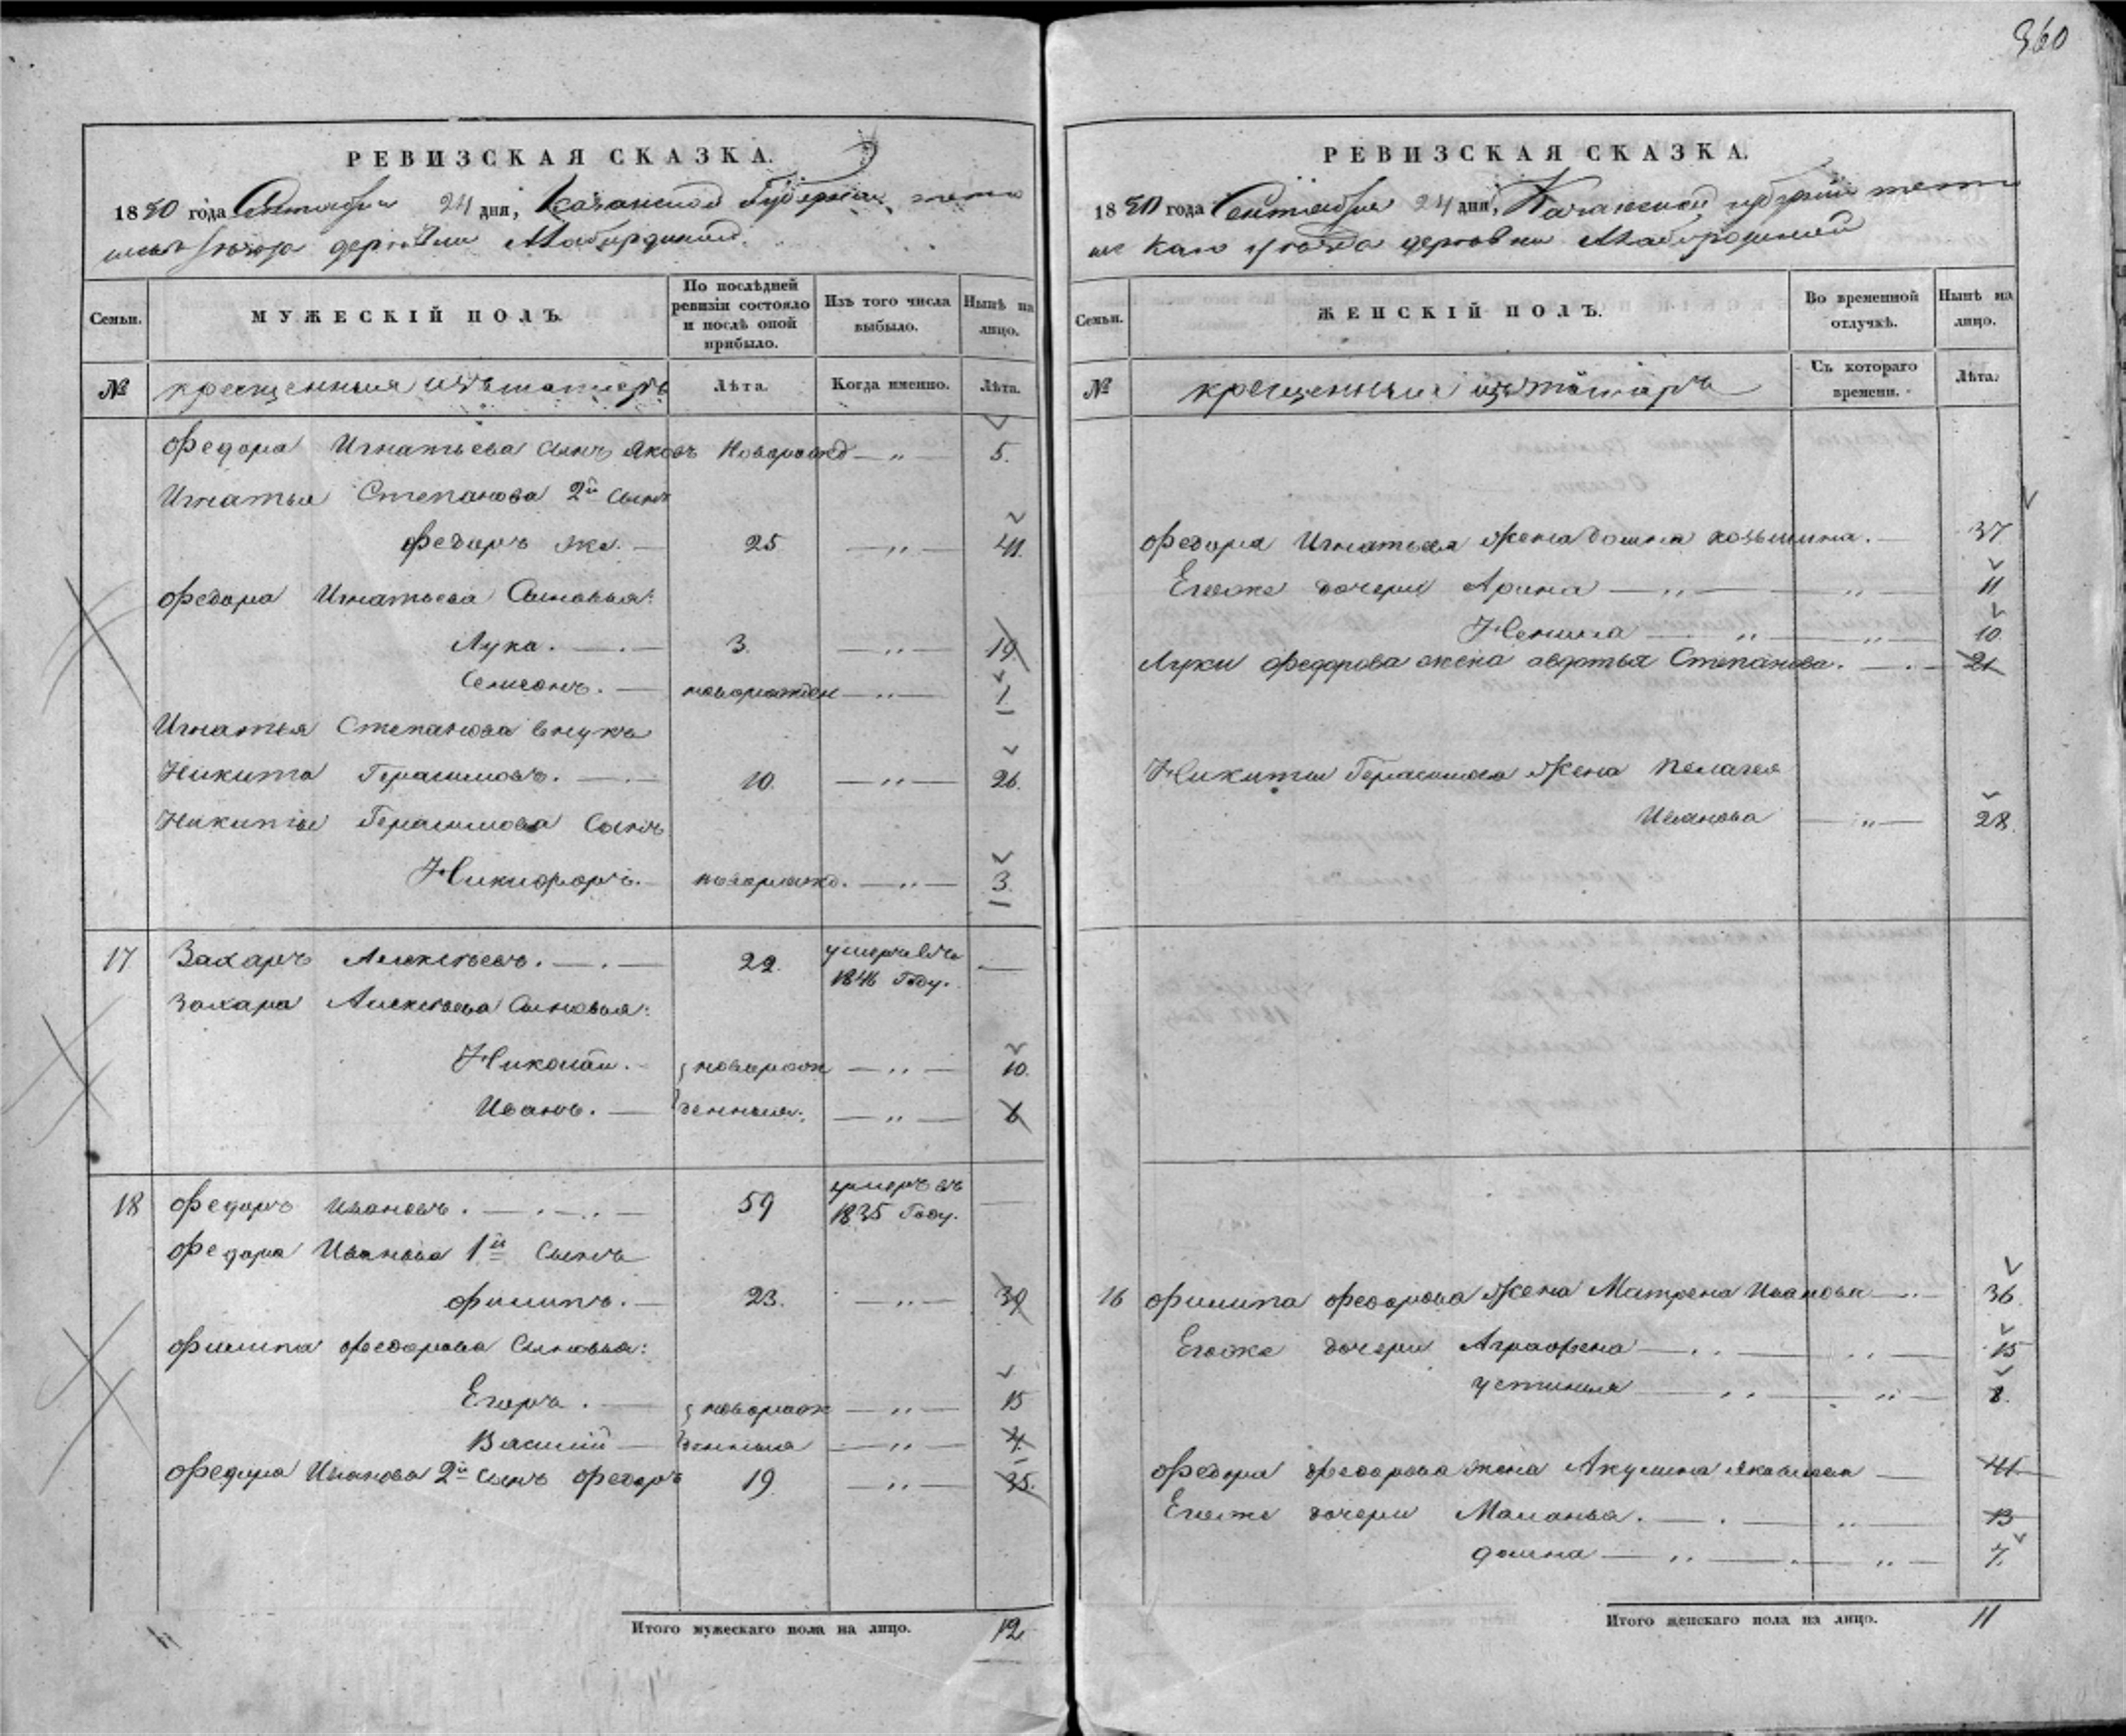 360
РЕВИЗСКАЯ СКАЗКА.
1850 года Сентября 24 дня, Казанской Губернии
деревни
Семьи.
МУЖЕСКІЙ ПОЛЪ.
По послѣдней ревизіи состояло и послѣ оной прибыло.
Изъ того числа выбыло.
Нынѣ на лицо.
№ крещенныя изъ татаръ Лѣта. Когда именно. Лѣта.
Федора Игнатьева сынъ Яковъ новорожд — „ — 5.
Игнатья Степанова 2й сынъ
Федоръ же. — 25 — „ — 41.
Федора Игнатьева Сыновья:
Лука. — 3. — „ — 19.
Семенъ. — новорожден — „ — 1
Игнатья Степанова внукъ
Никита Герасимовъ. — 10. — „ — 26.
Никиты Герасимова Сынъ
Никифоръ. — новорожд. — „ — 3.
17 Захаръ Алексѣевъ. — . — 22. умеръ въ 1846 Году. —
Захара Алексѣева Сыновья:
Николай. — новорож — „ — 10.
Иванъ. — денныя. — „ — 6
18 Федоръ Ивановъ. — 59 умеръ въ 1835 Году. —
Федора Иванова 1й Сынъ
Филипъ. — 23. — „ — 39
Филипа Федорова Сыновья:
Егоръ. — новорож — „ — 15
Василий — денныя — „ — 4.
Федора Иванова 2й сынъ Федоръ 19. — „ — 35.
Итого мужескаго пола на лицо. 12
РЕВИЗСКАЯ СКАЗКА.
1850 года Сентября 24 дня, Казанской губерніи
уѣзда деревни
Семьи.
ЖЕНСКІЙ ПОЛЪ.
Во временной отлучкѣ.
Нынѣ на лицо.
№ крещенныя изъ татаръ Съ котораго времени. Лѣта.
Федора Игнатьева Жена Домна Козьмина. — 37
Егоже дочери Арина — „ — „ — 11
— „ — „ — 10.
Луки Федорова жена Авдотья Степанова. — . — 21
Никиты Герасимова Жена Пелагея
Иванова — „ — 28.
16 Филипа Федорова Жена Матрена Иванова — 36.
Егоже дочери Аграфена — „ — „ — 15
Устинья — „ — „ — 8.
Федора Федорова жена Акулина Яковлева — 41
Егоже дочери Маланья. — . — „ — 13
Домна — „ — „ — 7.
Итого женскаго пола на лицо. 11